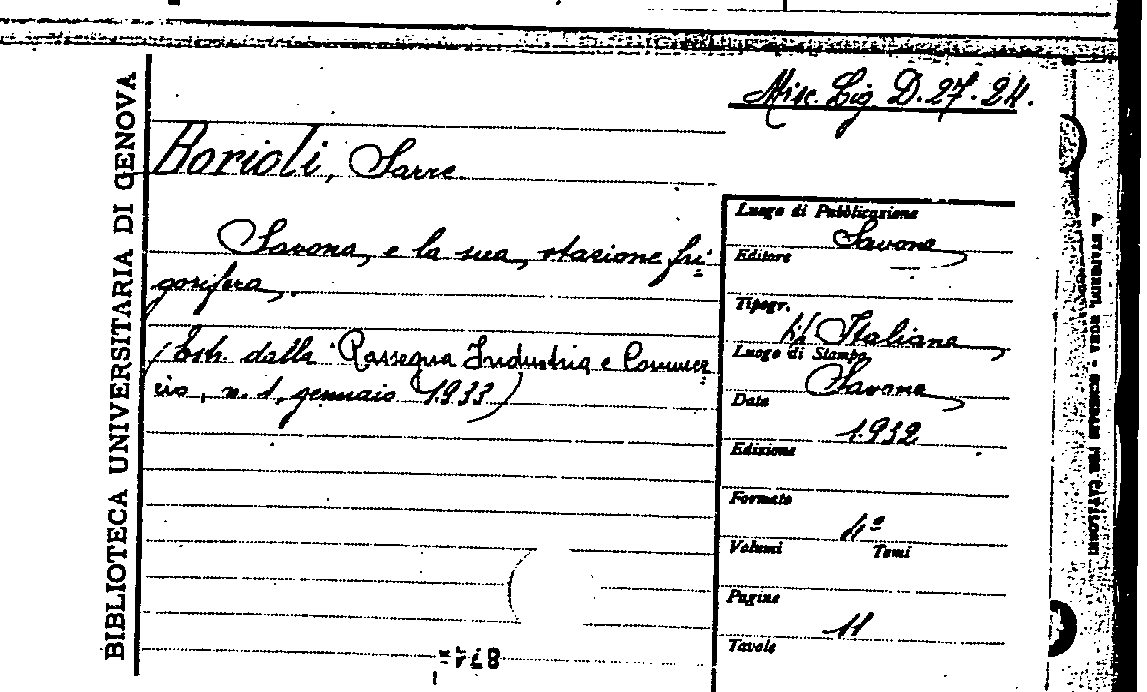 BIBLIOTECA UNIVERSITARIA DI GENOVA
Misc. Lig. D. 27. 24.
Borioli, Sarre.
Savona, e la sua stazione fri-
gorifera.
(Estr. dalla Rassegna Industria e Commer-
cio, n. 1, gennaio 1933)
Luogo di Pubblicazione
Savona
Editore
Tipogr.
Italiana
Luogo di Stampa
Savona
Data
1932
Edizione
Formato
4°
Volumi Tomi
Pagine
11
Tavole